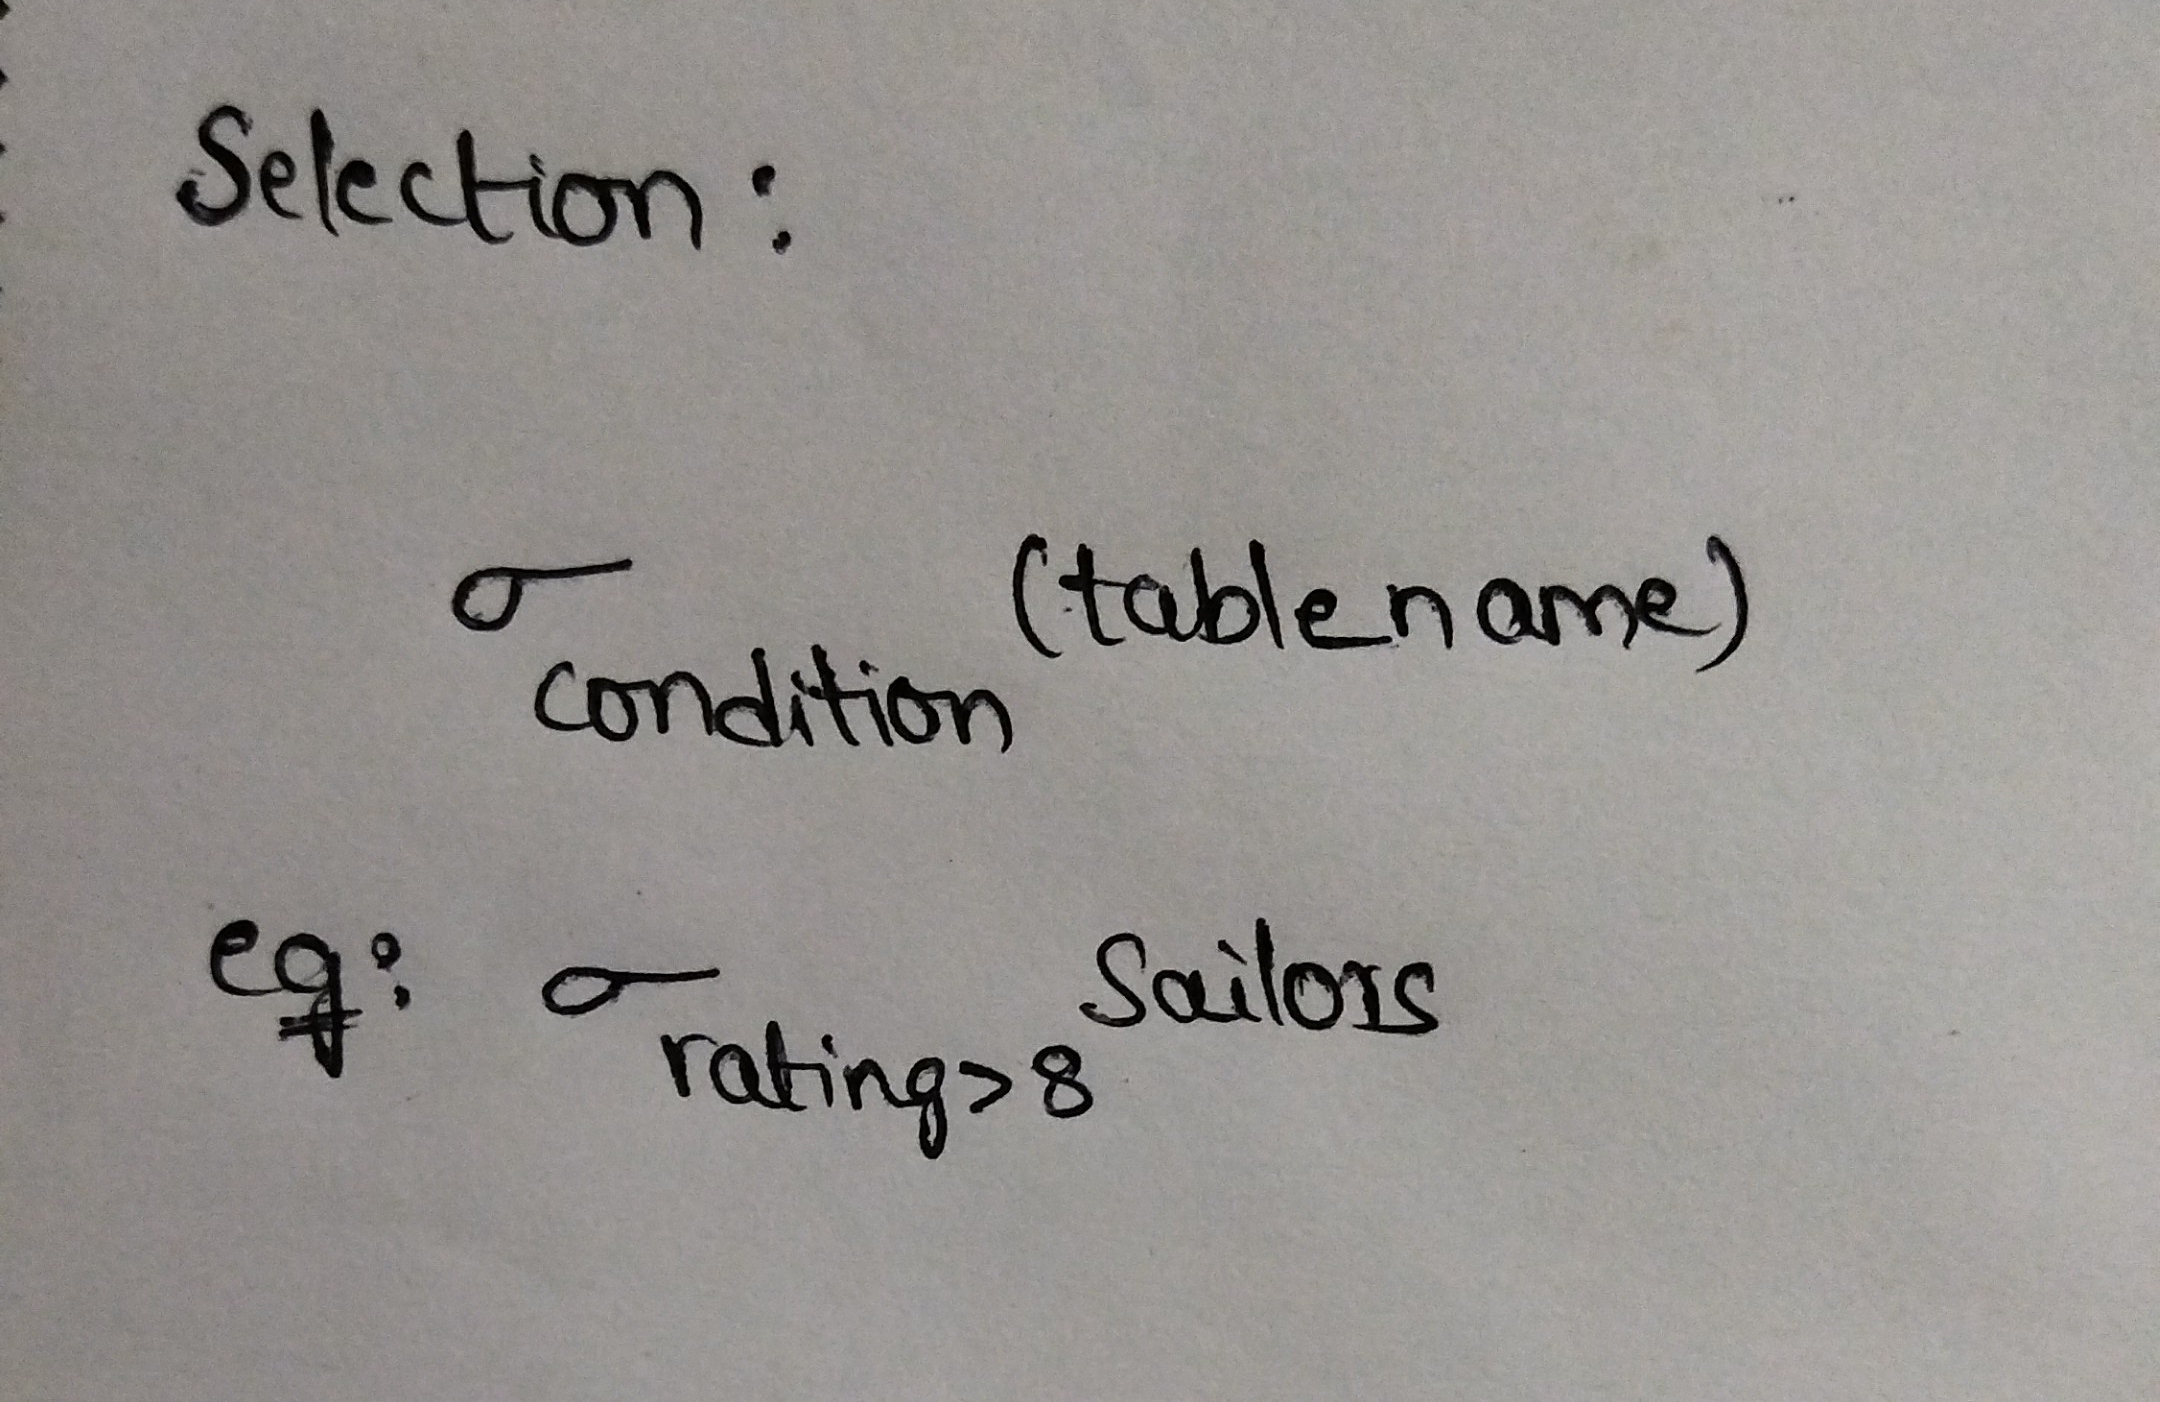 Selection:
σ condition (tablename)
eg: σ rating>8 Sailors